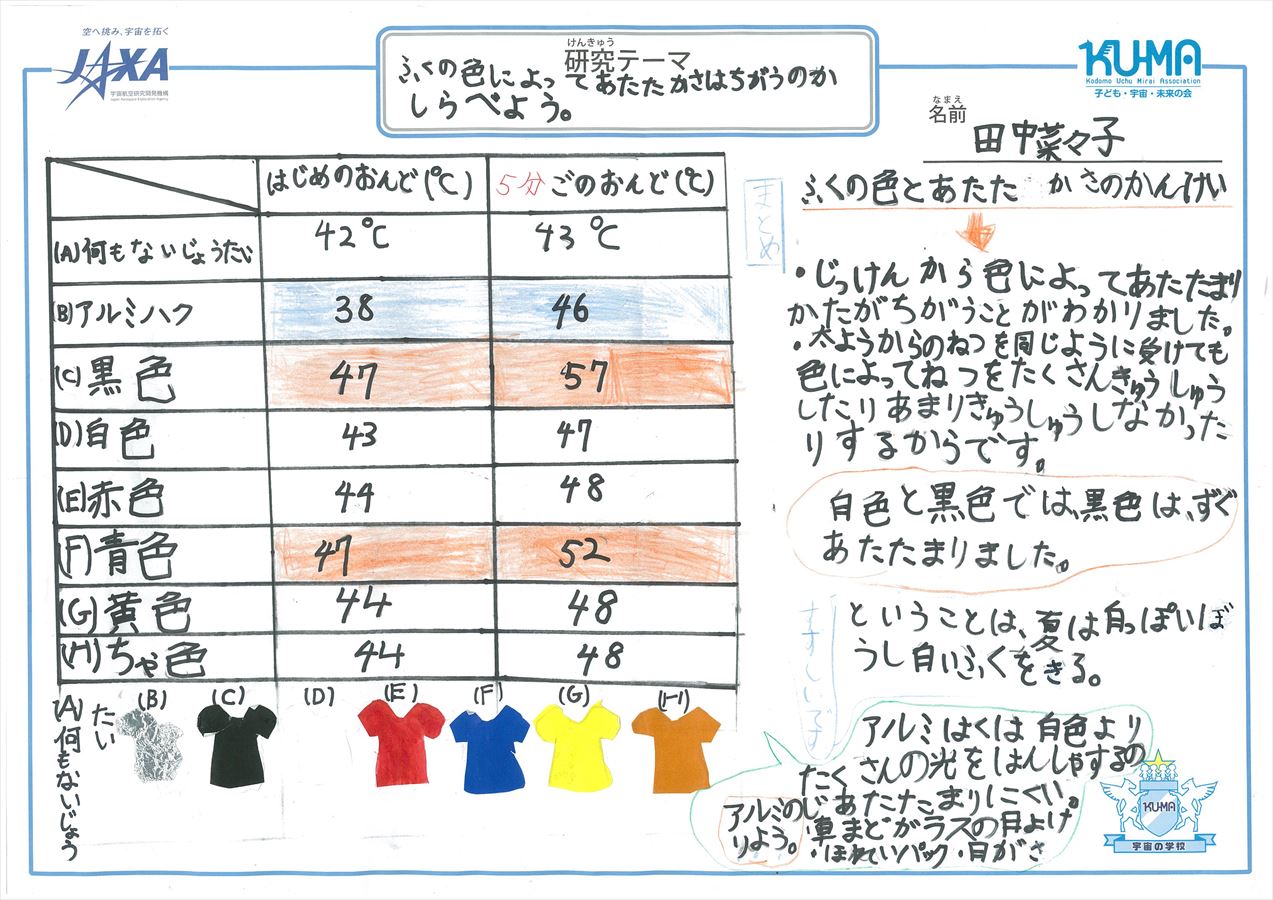 空へ挑み、宇宙を拓く
JAXA
宇宙航空研究開発機構
Japan Aerospace Exploration Agency
けんきゅう
研究テーマ
ふくの色によってあたたかさはちがうのか
しらべよう。
KU-MA
Kodomo Uchu Mirai Association
子ども・宇宙・未来の会
なまえ
名前
田中菜々子
はじめのおんど(℃) 5分ごのおんど(℃)
(A)何もないじょうたい 42℃ 43℃
(B)アルミハク 38 46
(C)黒色 47 57
(D)白色 43 47
(E)赤色 44 48
(F)青色 47 52
(G)黄色 44 48
(H)ちゃ色 44 48
(A)何もないじょう
たい
(B) (C) (D) (E) (F) (G) (H)
まとめ
ふくの色とあたたかさのかんけい
・じっけんから色によってあたたまり
かたがちがうことがわかりました。
・太ようからのねつを同じように受けても
色によってねつをたくさんきゅうしゅう
したりあまりきゅうしゅうしなかった
りするからです。
白色と黒色では、黒色は、ずぐ
あたたまりました。
ということは、夏は白っぽいぼ
うし白いふくをきる。
すずしいです
アルミはくは白色より
たくさんの光をはんしゃするの
じあたたまりにくい。
アルミの
りよう。
・車まどガラスの日よけ
・ほれいパック・日がさ
KU-MA
宇宙の学校